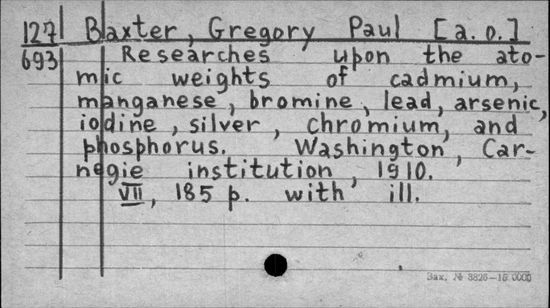 127 Baxter, Gregory Paul [a. o.]
693 Researches upon the ato-
mic weights of cadmium,
manganese, bromine, lead, arsenic,
iodine, silver, chromium, and
phosphorus. Washington, Car-
negie institution, 1910.
VII, 185 p. with ill.
Зак. № 3826—15.000